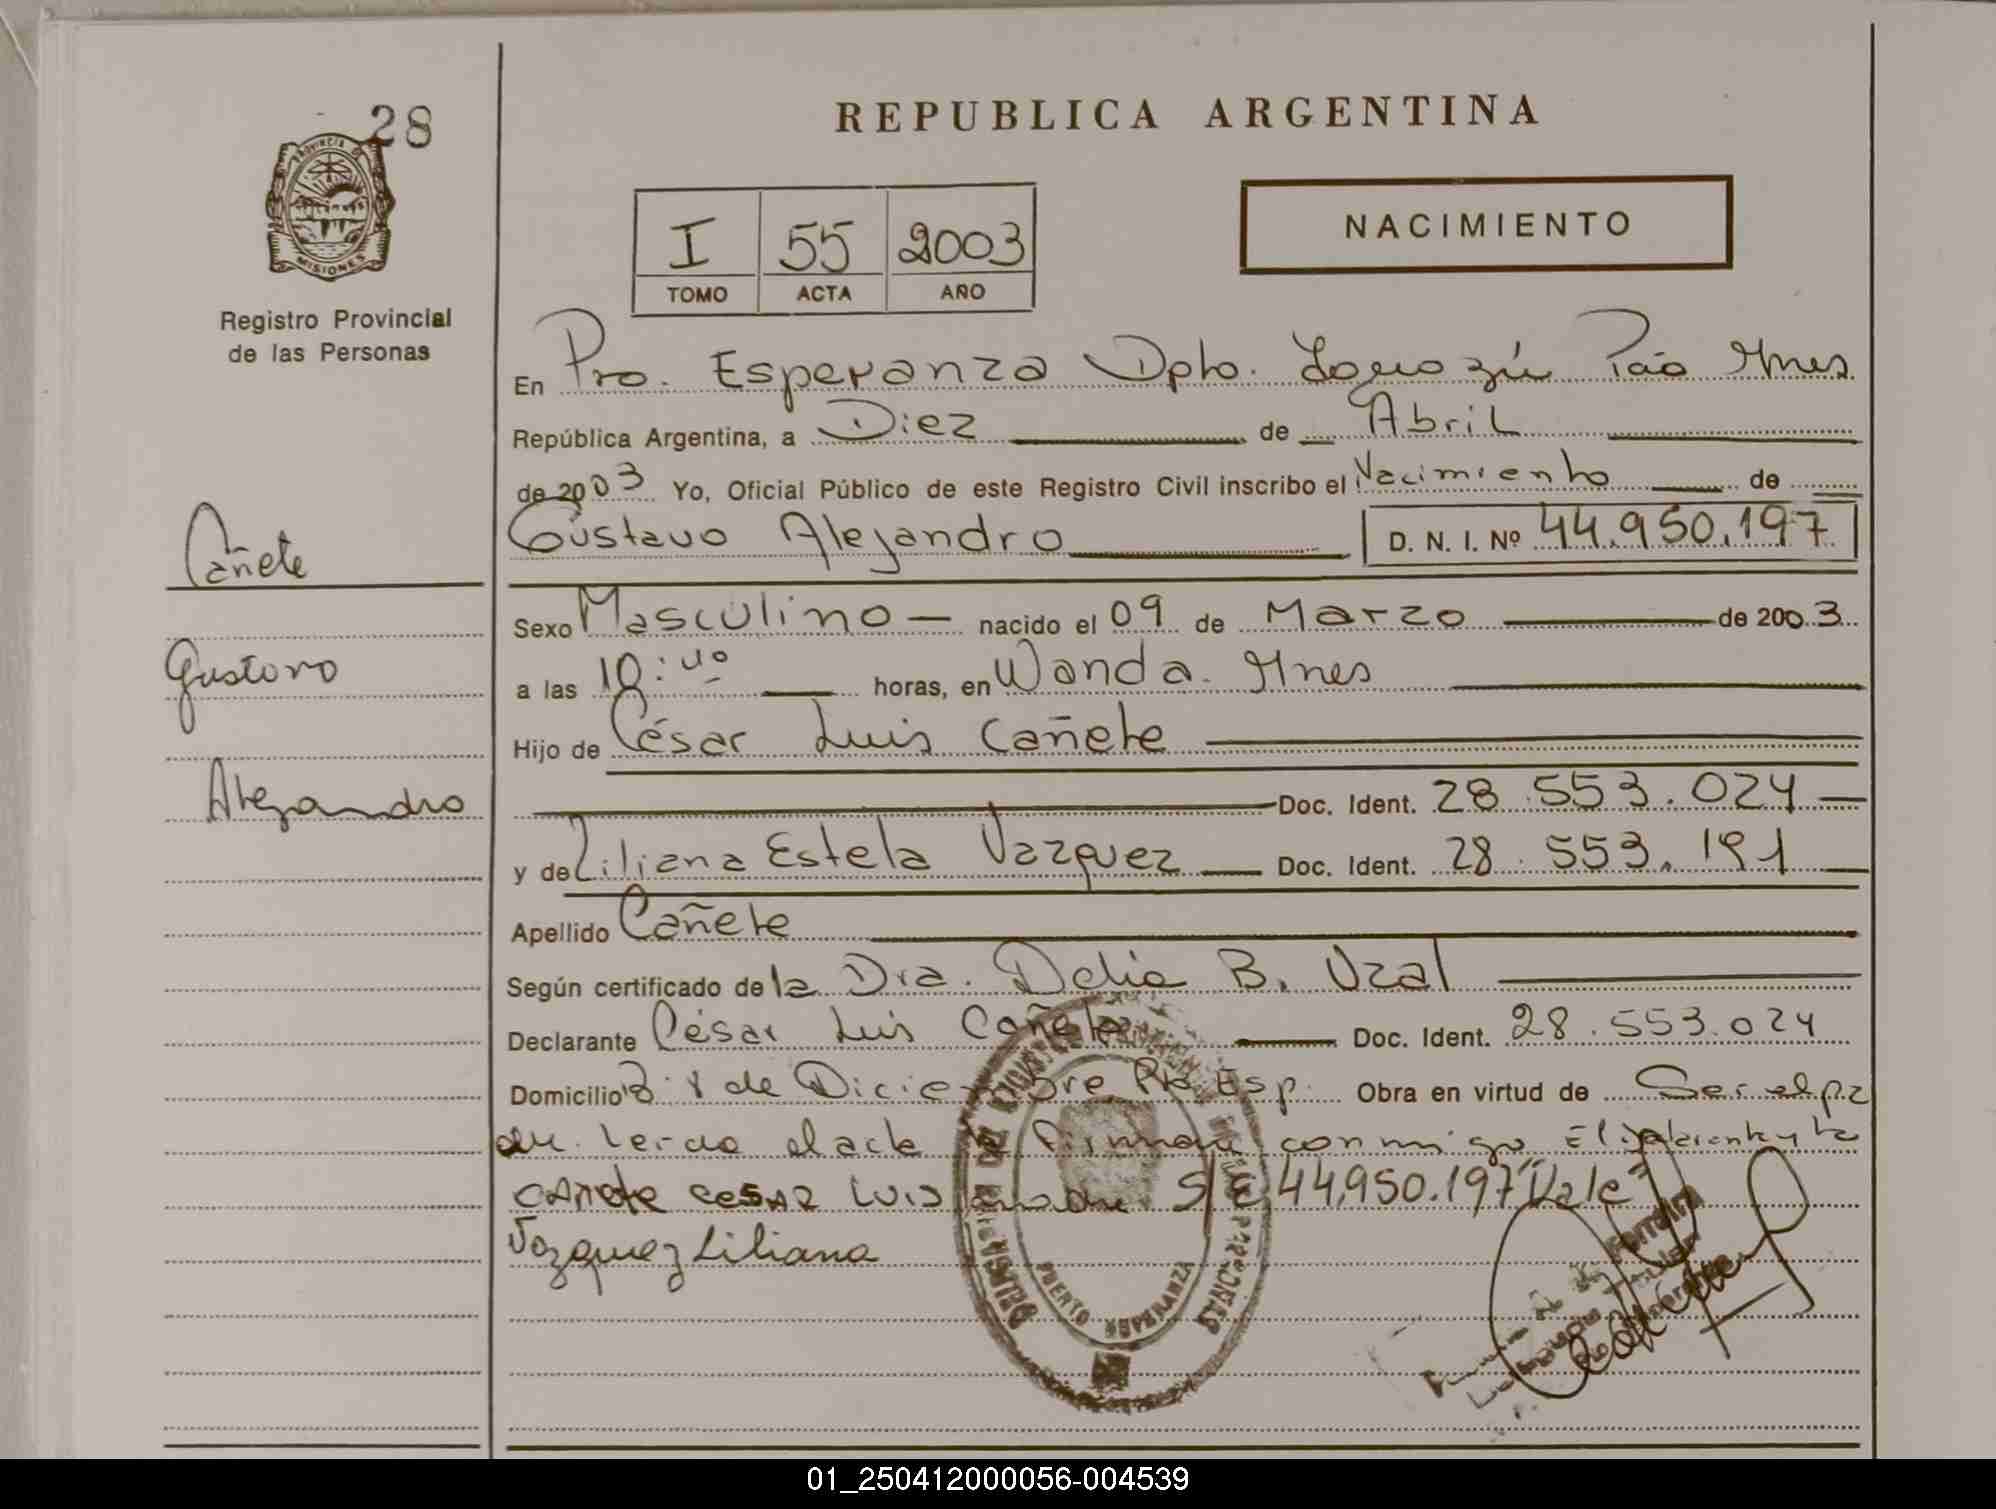 28
PROVINCIA DE
MISIONES
Registro Provincial
de las Personas
Cañete
Gustavo
Alejandro
REPUBLICA ARGENTINA
I 55 2003
TOMO ACTA AÑO
NACIMIENTO
En Pto. Esperanza Dpto. Iguazú Pcia Mnes
República Argentina, a Diez de Abril
de 2003 Yo, Oficial Público de este Registro Civil inscribo el Nacimiento de
Gustavo Alejandro D. N. I. Nº 44.950.197
Sexo Masculino nacido el 09 de Marzo de 2003
a las horas, en Wanda. Mnes
Hijo de César Luis Cañete
Doc. Ident. 28.553.024
y de Liliana Estela Vazquez Doc. Ident. 28.553.191
Apellido Cañete
Según certificado de la Dra. Delia B. Uzal
Declarante César Luis Cañete Doc. Ident. 28.553.024
Domicilio Bº 8 de Diciembre Pto Esp. Obra en virtud de Ser el pa
dre. Leida el acta la firman conmigo El
Cañete CESAR LUIS S/E 44.950.197 "Vale"
Vazquez Liliana
PUERTO ESPERANZA
01_250412000056-004539